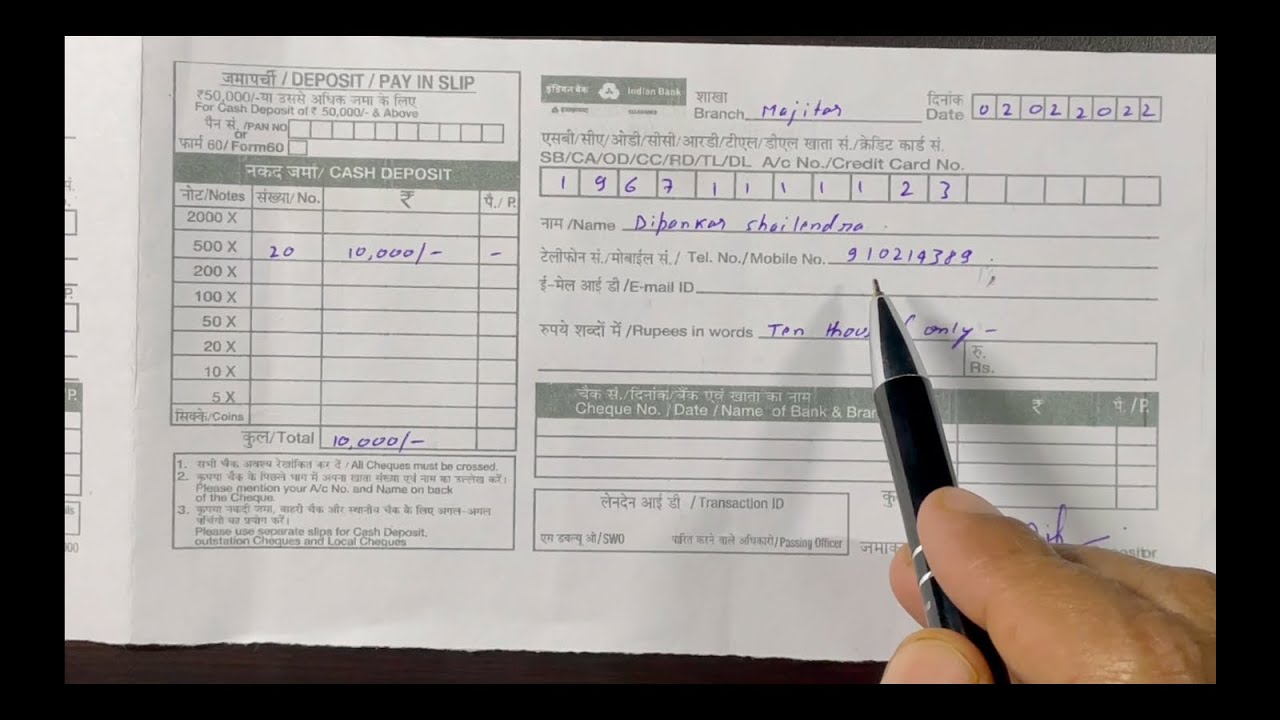 जमापर्ची / DEPOSIT / PAY IN SLIP
₹50,000/-या उससे अधिक जमा के लिए
For Cash Deposit of ₹ 50,000/- & Above
पैन सं. /PAN NO
or
फार्म 60/ Form60
नकद जमा/ CASH DEPOSIT
नोट/Notes संख्या/No. ₹ पै./ P.
2000 X
500 X 20 10,000/- -
200 X
100 X
50 X
20 X
10 X
5 X
सिक्के/Coins
कुल/Total 10,000/-
1. सभी चैक अवश्य रेखांकित कर दें / All Cheques must be crossed.
2. कृपया चैक के पिछले भाग में अपना खाता संख्या एवं नाम का उल्लेख करें।
Please mention your A/c No. and Name on back
of the Cheque.
3. कृपया नकदी जमा, बाहरी चैक और स्थानीय चैक के लिए अलग-अलग
पर्चियों का प्रयोग करें।
Please use separate slips for Cash Deposit,
outstation Cheques and Local Cheques
इंडियन बैंक Indian Bank
शाखा
Branch Majitar
दिनांक
Date 02022022
एसबी/सीए/ओडी/सीसी/आरडी/टीएल/डीएल खाता सं./क्रेडिट कार्ड सं.
SB/CA/OD/CC/RD/TL/DL A/c No./Credit Card No.
19671111123
नाम /Name Dipankar Shailendra
टेलीफोन सं./मोबाईल सं./ Tel. No./Mobile No. 910214389
ई-मेल आई डी /E-mail ID
रुपये शब्दों में /Rupees in words Ten only -
रु.
Rs.
चैक सं./दिनांक/बैंक एवं खाता का नाम ₹ पै. /P.
Cheque No. / Date / Name of Bank &
लेनदेन आई डी / Transaction ID
एस डबल्यू ओ/SWO पारित करने वाले अधिकारी/Passing Officer
P.
P.